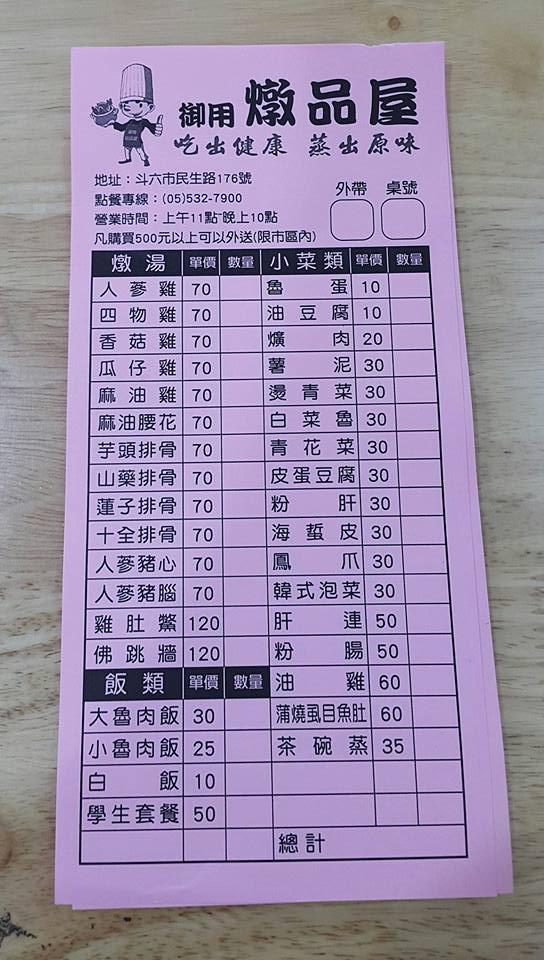 御用 燉品屋
吃出健康 蒸出原味
地址：斗六市民生路176號
點餐專線：(05)532-7900
營業時間：上午11點~晚上10點
凡購買500元以上可以外送(限市區內)
外帶 桌號
燉湯 單價 數量 小菜類 單價 數量
人蔘雞 70 魯蛋 10
四物雞 70 油豆腐 10
香菇雞 70 爌肉 20
瓜仔雞 70 薯泥 30
麻油雞 70 燙青菜 30
麻油腰花 70 白菜魯 30
芋頭排骨 70 青花菜 30
山藥排骨 70 皮蛋豆腐 30
蓮子排骨 70 粉肝 30
十全排骨 70 海蜇皮 30
人蔘豬心 70 鳳爪 30
人蔘豬腦 70 韓式泡菜 30
雞肚鱉 120 肝連 50
佛跳牆 120 粉腸 50
飯類 單價 數量 油雞 60
大魯肉飯 30 蒲燒虱目魚肚 60
小魯肉飯 25 茶碗蒸 35
白飯 10
學生套餐 50
總計